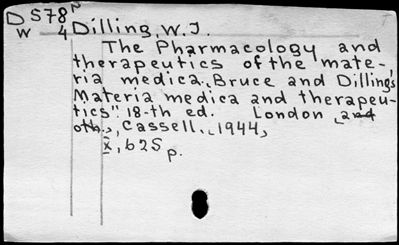 D 578
W 4 Dilling, W.J.
The Pharmacology and
therapeutics of the mate-
ria medica, Bruce and Dilling's
Materia medica and therapeu-
tics". 18-th ed. London and
oth., Cassell, 1944,
X, 625 p.